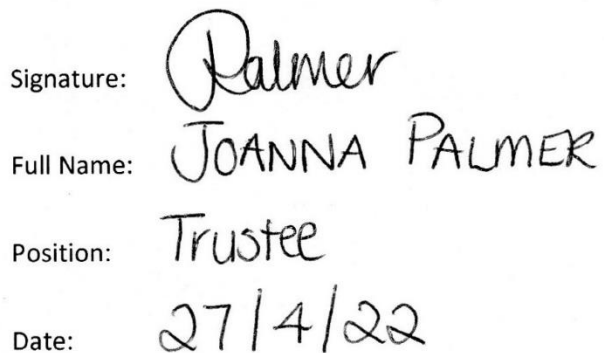 Signature: Palmer
Full Name: JOANNA PALMER
Position: Trustee
Date: 27/4/22